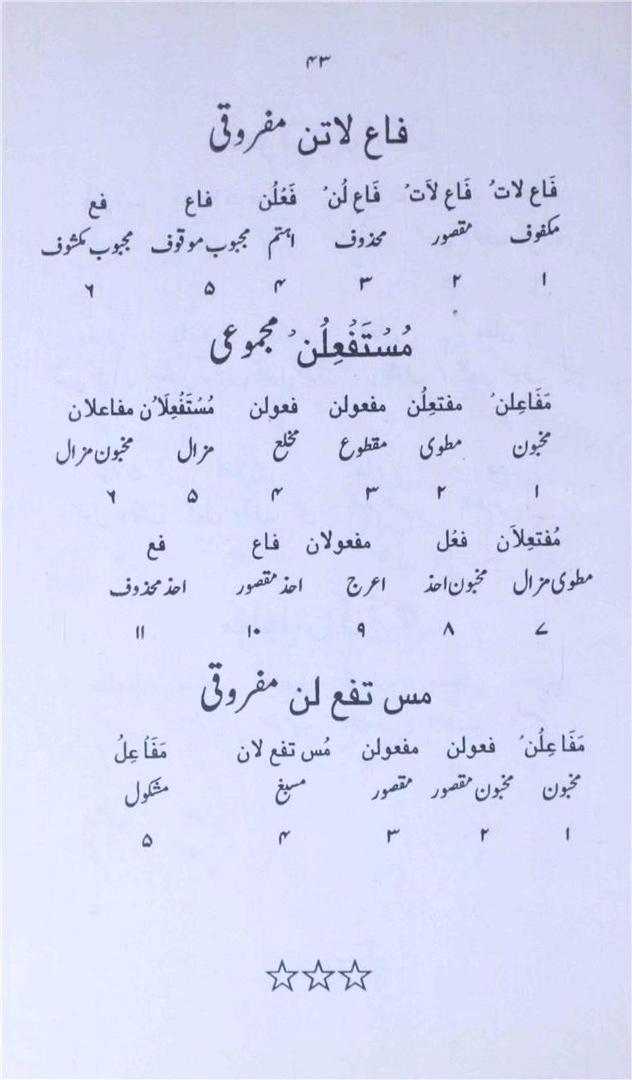 ۴۳
فاع لاتن مفروقی
فَاع لاتُ فَاع لَاتُ فَاع لُنُ فَعْلُن فاع فع
مکفوف مقصور محذوف اہتم مجبوب موقوف مجبوب مکشوف
۱ ۲ ۳ ۴ ۵ ۶
مُسْتَفْعِلُنُ مجموعی
مَفَاعِلنُ مفتعِلُن مفعولن فعولن مُسْتَفْعِلَانُ مفاعلان
مخبون مطوی مقطوع مخلع مزال مخبون مزال
۱ ۲ ۳ ۴ ۵ ۶
مُفتعِلَان فعُل مفعولان فاع فع
مطوی مزال مخبون احذ اعرج احذ مقصور احذ محذوف
۷ ۸ ۹ ۱۰ ۱۱
مس تفع لن مفروقی
مَفَاعِلُنُ فعولن مفعولن مُس تفع لان مَفَاعِلُ
مخبون مخبون مقصور مقصور مسبغ مشکول
۱ ۲ ۳ ۴ ۵
☆☆☆